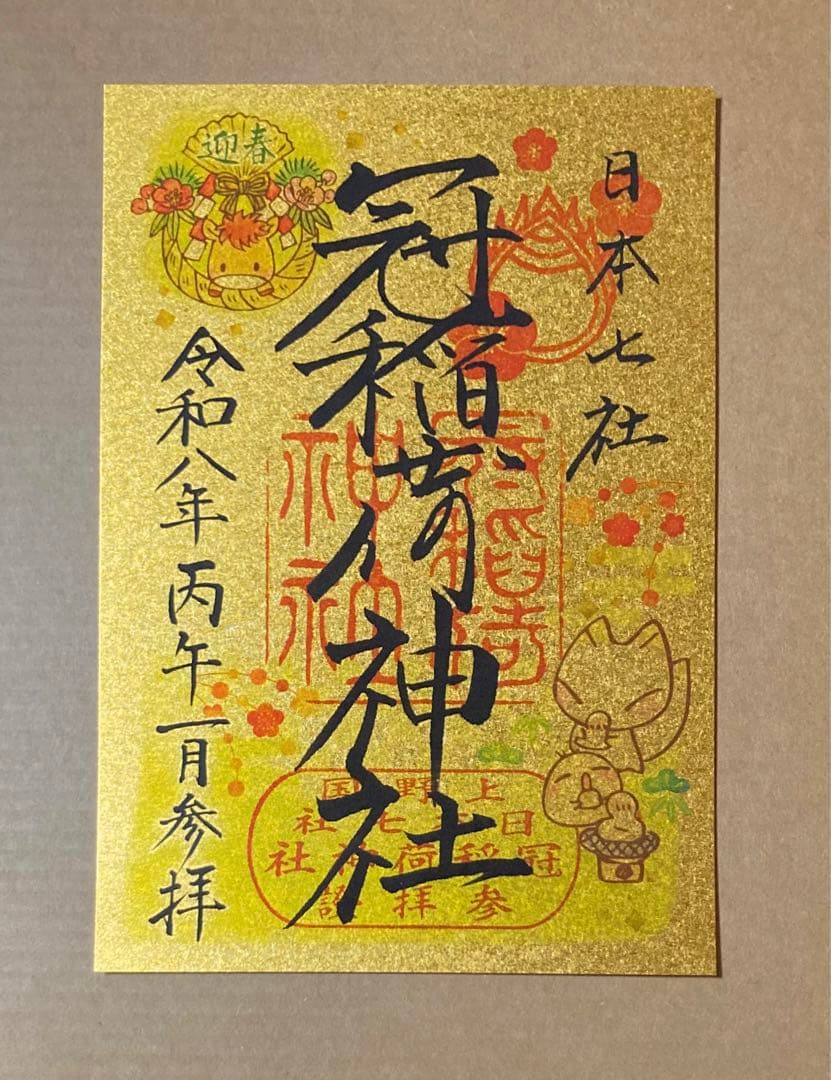 日本七社
冠稲荷神社
令和八年丙午一月参拝
迎春
上野国
日本七社
冠稲荷神社
参拝証